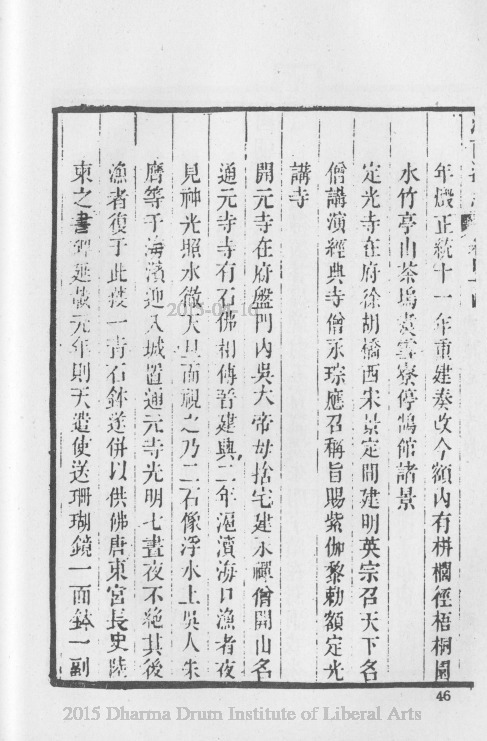 年燬正統十一年重建奏改今額內有栟櫚徑梧桐園
水竹亭山茶塢寮停鵠館諸景
定光寺在府徐胡橋西宋景定間建明英宗召天下名
僧講演經典寺僧永琮應召稱旨賜紫伽黎勅額定光
講寺
開元寺在府盤門內吳大帝母捨宅建永禪僧開山名
通元寺寺有石佛相傳晉建興二年滬瀆海口漁者夜
見神光照水徹天旦而視之乃二石像浮水上吳人朱
膺等于海濱迎入城置通元寺光明七晝夜不絶其後
漁者復于此發一青石鉢遂併以供佛唐東宮長史陸
柬之書碑延載元年則天遣使送珊瑚鏡一面鉢一副
46
2015 Dharma Drum Institute of Liberal Arts